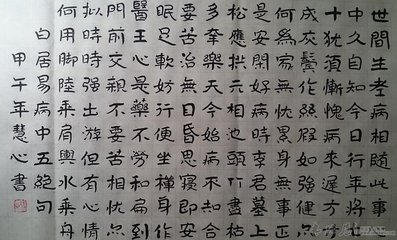 世間生老病相隨此事心
中久自知今日行年將七
十犹須慚愧病來遲方寸
成灰鬢作絲假如强健亦
何為家無忧累身無事正
是安閑好病時李君墓上
松應拱元相池頭竹盡枯
多幸樂天今始病不知合
要苦治無目昏思寢即安
眠足軟妨行便坐禪身作
醫王心是藥不勞和扁到
門前交親不要苦相忧亦
擬時時强出游但有心情
何用脚陸乘肩輿水乘舟
白居易病中五絶句
甲午年慧心書